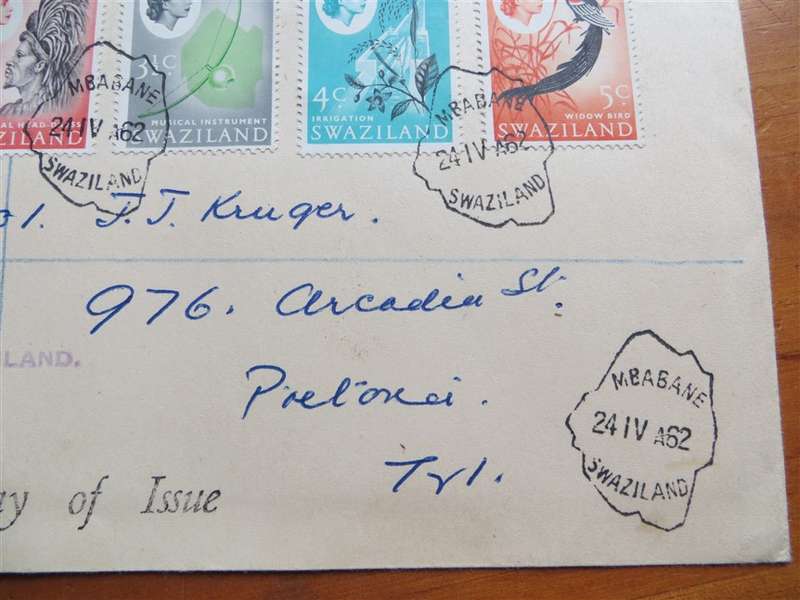 AL HEAD-DRESS
3½c.
MUSICAL INSTRUMENT
SWAZILAND
4c.
IRRIGATION
SWAZILAND
5c.
WIDOW BIRD
SWAZILAND
MBABANE
24 IV A62
SWAZILAND
MBABANE
24 IV A62
SWAZILAND
J. J. Kruger.
976. Arcadia St.
LAND.
Pretoria.
Tvl.
MBABANE
24 IV A62
SWAZILAND
ay of Issue